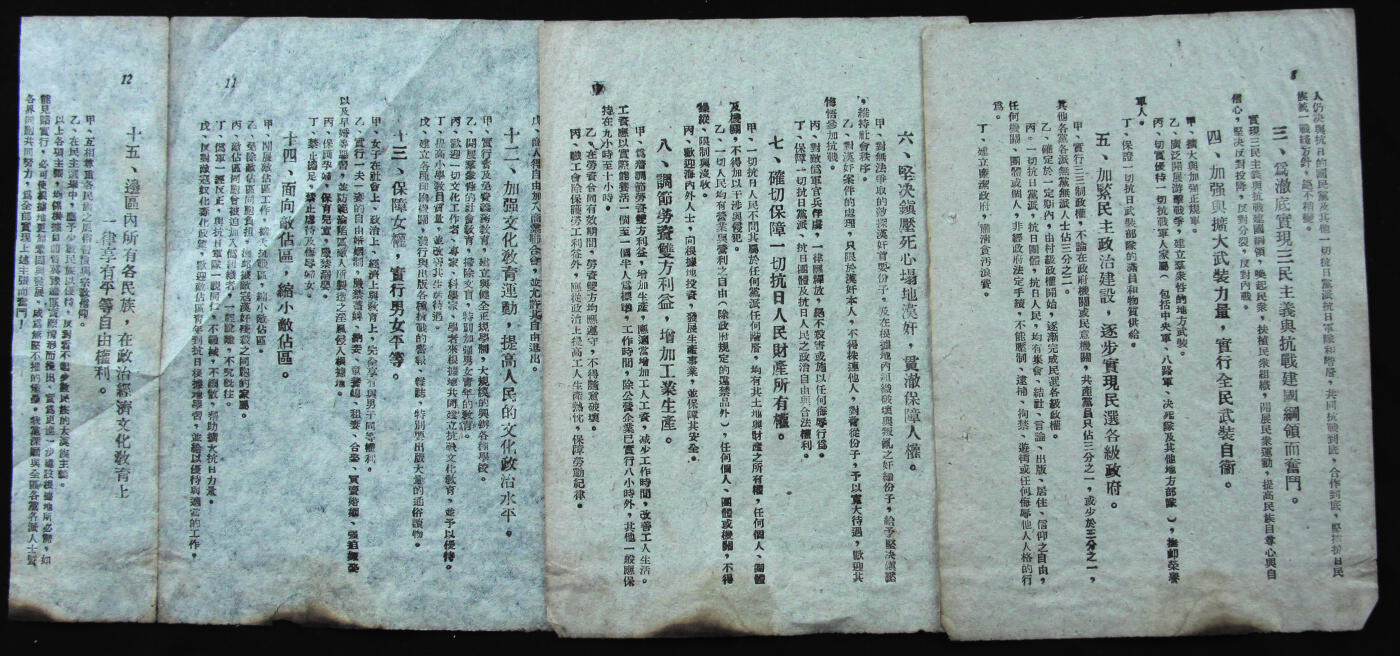 8
人仍决與抗日的國民黨及其他一切抗日黨派抗日軍隊和階層,共同抗戰到底,合作到底,堅持抗日民
族統一戰綫方針,絕不稍變。
三、爲澈底實現三民主義與抗戰建國綱領而奮鬥。
實現三民主義與抗戰建國綱領,喚起民衆,扶植民衆組織,開展民衆運動,提高民族自尊心與自
信心,堅決反對投降,反對分裂,反對內戰。
四、加强與擴大武裝力量,實行全民武裝自衛。
甲、擴大與加強正規軍。
乙、廣泛開展游擊戰爭,建立羣衆性的地方武裝。
丙、切實優待一切抗戰軍人家屬(包括中央軍、八路軍、决死隊及其他地方部隊),撫卹榮譽
軍人。
丁、保證一切抗日武裝部隊的滿員和物質供給。
五、加緊民主政治建設,逐步實現民選各級政府。
甲、實行三三制政權,不論在政府機關或民意機關,共產黨員只佔三分之一,或少於三分之一,
其他各黨各派無黨無派人士佔三分之二。
乙、確定於一定期內,由村級政權開始,逐漸完成民選各級政權。
丙、一切抗日黨派,抗日團體,抗日人民,均有集會、結社、言論、出版、居住、信仰之自由,
任何機關、團體或個人,非經政府法定手續,不能壓制、逮捕、拘禁、遊街或任何侮辱他人人格的行
爲。
丁、建立廉潔政府,肅清貪污浪費。
六、堅决鎭壓死心塌地漢奸,貫澈保障人權。
甲、對無法爭取的敵探漢奸首要份子,及在根據地內組織破壞與叛亂之奸細份子,給予堅决鎭壓
,維持社會秩序。
乙、對漢奸案件的處理,只限於漢奸本人,不得株連他人,對脅從份子,予以寬大待遇,歡迎其
悔悟參加抗戰。
丙、對敵僞軍官兵俘虜,一律應釋放,絕不殺害或施以任何侮辱行爲。
丁、保障一切抗日黨派、抗日團體及抗日人民之政治自由與合法權利。
七、確切保障一切抗日人民財產所有權。
甲、一切抗日人民不問其屬於任何黨派任何階層,均有其土地與財產之所有權,任何個人、團體
及機關,不得加以干涉與侵犯。
乙、一切人民均有營業與營利之自由(除政府規定的違禁品外),任何個人、團體或機關,不得
操縱、限制與沒收。
丙、歡迎海內外人士,向根據地投資,發展生產事業,並保障其安全。
八、調節勞資雙方利益,增加工業生產。
甲、爲着調節勞資雙方利益,增加生產,應適當增加工人工資,減少工作時間,改善工人生活。
工資應以實際能養活一個至一個半人爲標準,工作時間,除公營企業已實行八小時外,其他一般應保
持在九小時至十小時。
乙、在勞資合同有效期間,勞資雙方均應遵守,不得隨意破壞。
丙、職工會除保護勞工利益外,應從政治上提高工人生產熱忱,保障勞動紀律。
11
戊、商人得自由加入商業聯合會,並允許其自由退出。
十二、加强文化敎育運動,提高人民的文化政治水平。
甲、實行普及免費義務敎育,建立與健全正規學制,大規模的興辦各種學校。
乙、開展羣衆性的社會敎育,掃除文盲,特別加强男女靑年的敎育。
丙、歡迎一切文化工作者、專家、科學家、學者來根據地共同建立抗戰文化敎育,並予以優待。
丁、提高小學敎員質量,並改善其生活待遇。
戊、建立各種印刷機關,發行與出版各種抗戰的書報、雜誌,特別要出版大量的通俗讀物。
十三、保障女權,實行男女平等。
甲、女子在社會上、政治上、經濟上與敎育上,完全享有與男子同等權利。
乙、實行一夫一妻的自由婚姻制,嚴禁蓄婢、納妾、童養媳、租妻、合娶、買賣婚姻、强迫嫁娶
以及早婚等惡習,並防範淪陷區敵人所製造之淫風侵入根據地。
丙、保護孕婦,保育兒童,嚴禁溺嬰。
丁、禁止纏足,禁止虐待及侮辱婦女。
十四、面向敵佔區,縮小敵佔區。
甲、開展敵佔區工作,擴大抗戰區,縮小敵佔區。
乙、免除敵佔區同胞負担,撫卹被敵寇漢奸殘殺之同胞的家屬。
丙、敵佔區同胞曾被迫加入僞組織者,一經脫離,不究旣往。
丁、僞軍一經反正,與抗日軍隊一視同仁,不繳械,不編散,幫助擴大抗日力量。
戊、反對敵寇奴化毒化政策,歡迎敵佔區靑年到抗日根據地學習,並給以優待與適當的工作。
12
十五、邊區內所有各民族,在政治經濟文化敎育上
一律享有平等自由權利。
甲、互相尊重各民族之風俗習慣與宗敎信仰。
乙、在民主政權中,應予少數民族以優待,反對看不起少數民族的大漢族主義。
以上各項主張,均係根據目前晉冀豫邊區實際情形而提出,實爲更進一步建設根據地所必需,如
能見諸實行,必可使根據地更鞏固與發展,成爲無堅不摧的堡壘。我黨深願與全區各黨各派人士暨
各界同胞共同努力,爲全部實現上述主張而奮鬥!